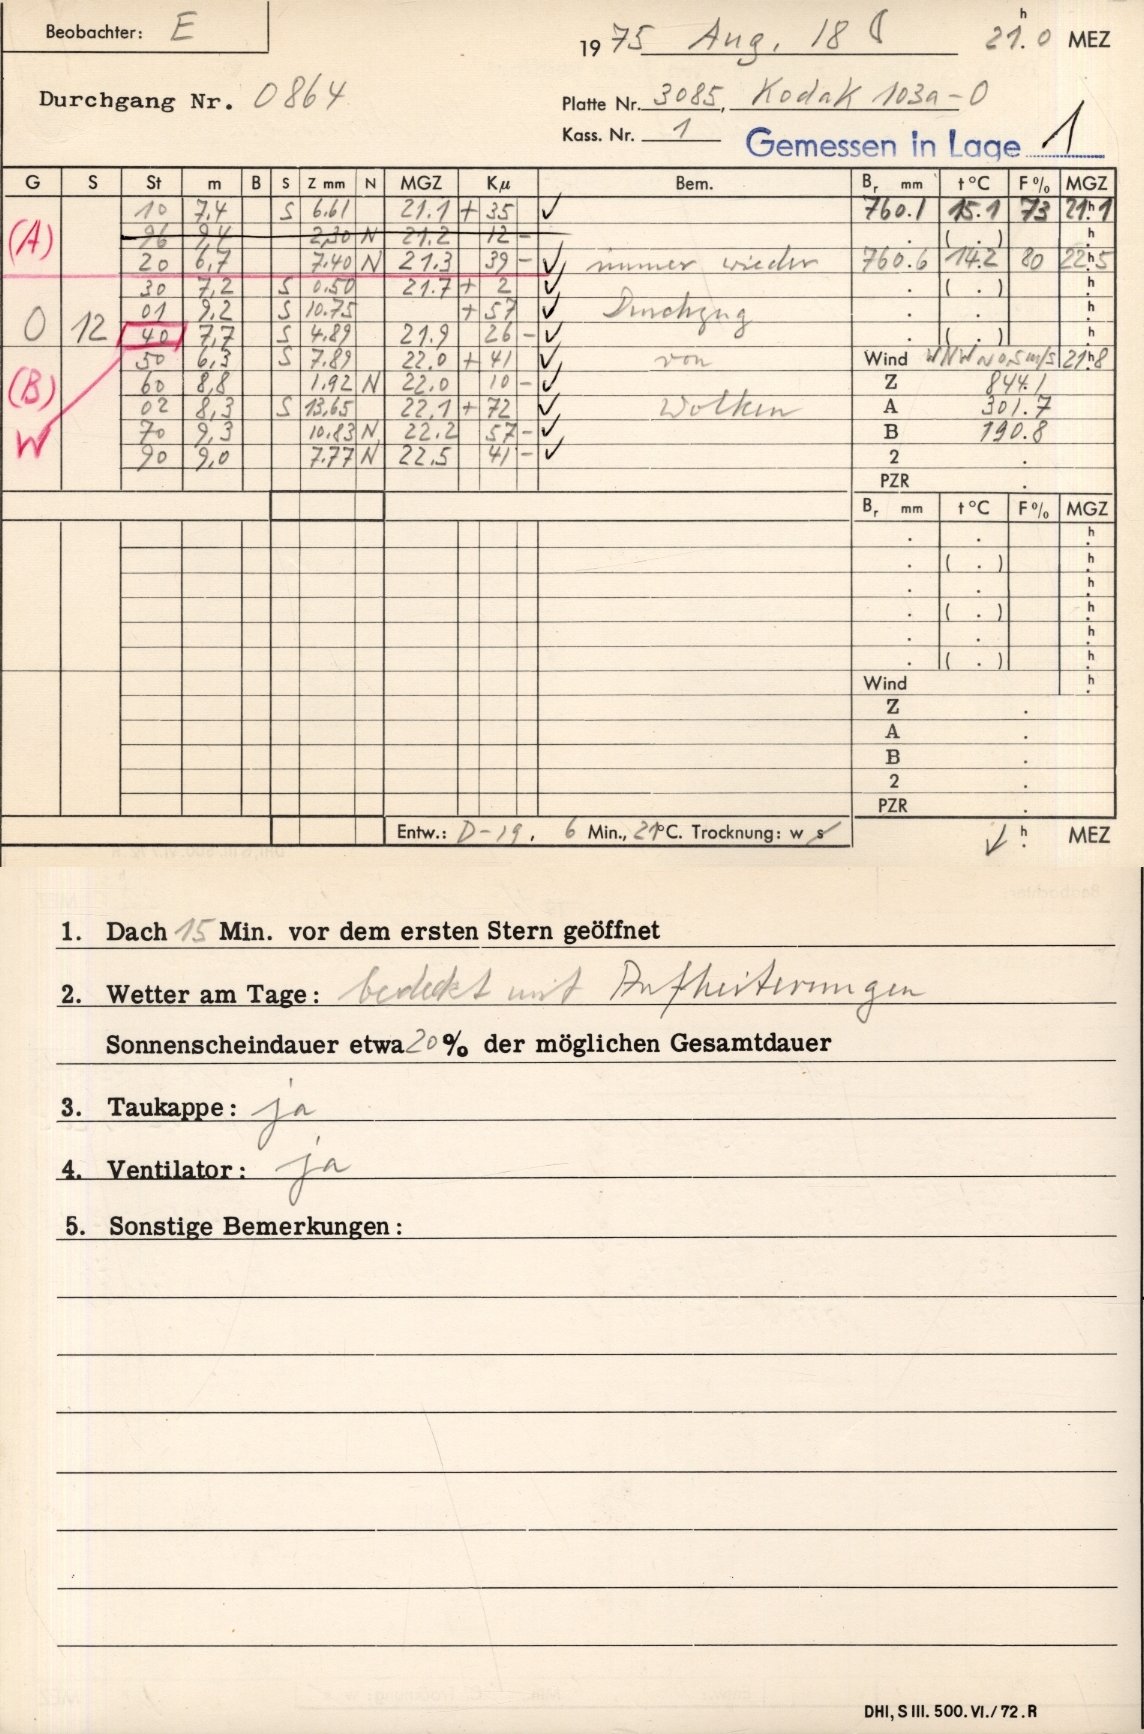 Beobachter: E
1975 Aug. 18 21.h0 MEZ
Durchgang Nr. 0864
Platte Nr. 3085, Kodak 103a-O
Kass. Nr. 1
Gemessen in Lage 1
G S St m B S Z mm N MGZ Kµ Bem. Br mm t °C F% MGZ
10 7,4 S 6.61 21.1 + 35 ✓ 760.1 15.1 73 21.h1
(A) 96 9,4 2,30 N 21.2 12 - . ( . ) h.
20 6,7 7.40 N 21.3 39 - ✓ immer wieder 760.6 14.2 80 22.h5
30 7,2 S 0.50 21.7 + 2 ✓ . ( . ) h.
01 9,2 S 10.75 + 57 ✓ Durchzug . . h.
0 12 40 7,7 S 4.89 21.9 26 - ✓ . ( . ) h.
50 6,3 S 7.89 22.0 + 41 ✓ von Wind WNW 0,5 m/s 21.h8
(B) 60 8,8 1.92 N 22.0 10 - ✓ Z 844.1
02 8,3 S 13,65 22,1 + 72 ✓ Wolken A 301.7
W 70 9,3 10.83 N 22.2 57 - ✓ B 190.8
90 9,0 7.77 N 22,5 41 - ✓ 2 .
PZR .
Br mm t °C F% MGZ
. . h.
. ( . ) h.
. . h.
. ( . ) h.
. . h.
. ( . ) h.
Wind h.
Z .
A .
B .
2 .
PZR .
Entw.: D-19, 6 Min., 21°C. Trocknung: w s ✓ h. MEZ
1. Dach 15 Min. vor dem ersten Stern geöffnet
2. Wetter am Tage: bedeckt mit Aufheiterungen
Sonnenscheindauer etwa 20 % der möglichen Gesamtdauer
3. Taukappe: ja
4. Ventilator: ja
5. Sonstige Bemerkungen:
DHI, S III. 500. VI./72. R